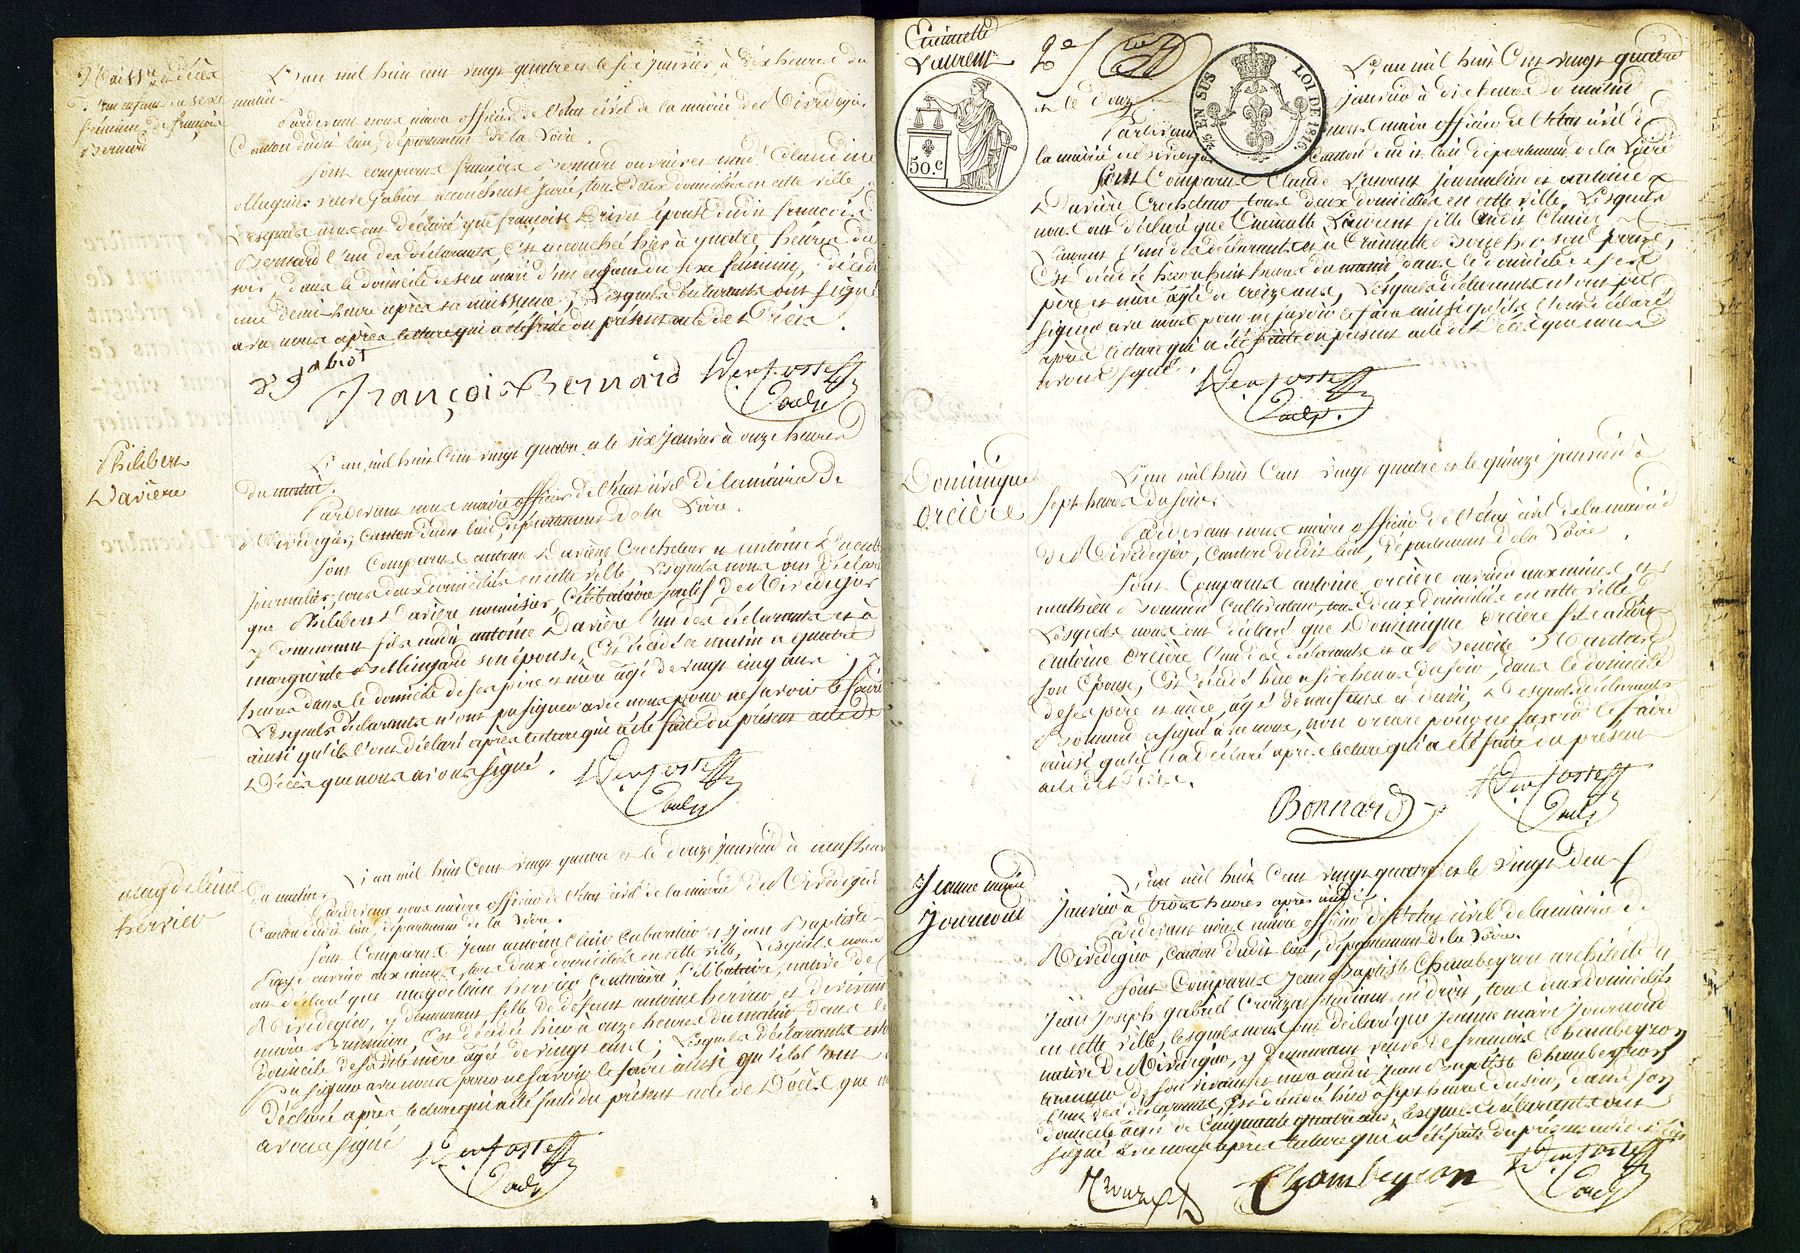 Naissce et décès
d'un enfant du sexe
féminin de françois
Bernard
L'an mil huit cent vingt quatre et le six janvier, à dix heures du
matin.
Pardevant nous maire officier de l'état civil de la mairie de Rivedegier
Canton dudit lieu, département de la Loire.
Sont comparus françois Bernard ouvrier Claudine
veuve Gabiot accoucheuse jurée, tous deux domiciliés en cette ville,
Lesquels nous ont déclaré que françoise Privet épouse dudit françois
Bernard l'un des déclarants, Est accouchée hier à quatre heures du
soir, dans le domicile de son mari d'un enfant du sexe féminin, décédé
une demi-heure après sa naissance; Lesquels déclarants ont signé
avec nous après lecture qui a été faite du présent acte de Décès.
Ve Gabiot
François Bernard
Philibert
Darière
L'an mil huit Cent vingt quatre et le six janvier à onze heures
du matin.
Pardevant nous maire officier de l'état civil de la mairie de
Rivedegier, Canton dudit lieu, département de la Loire.
Sont Comparus antoine Darière Crocheteur et antoine
journalier, tous deux domiciliés en cette ville Lesquels nous ont déclaré
que Philibert Darière menuisier, Célibataire natif de Rivedegier
y demeurant fils audit antoine Darière l'un des déclarants et à
marguerite Bellingard son épouse, Est décédé ce matin à quatre
heures dans le domicile de ses père et mère agé de vingt cinq ans;
Lesquels déclarants n'ont pu signer avec nous pour ne savoir le faire
ainsi qu'ils l'ont déclaré après lecture qui a été faite du présent acte de
Décès que nous avons signé.
magdeleine
hervier
L'an mil huit Cent vingt quatre et le douze janvier à neuf heures
du matin.
Pardevant nous maire officier de l'état civil de la mairie de Rivedegier
Canton dudit lieu, département de la Loire.
Sont Comparus Jean antoine Clair Cabaretier et Jean Baptiste
ouvrier aux mines, tous deux domiciliés en cette ville, Lesquels nous
ont déclaré que magdeleine hervier Couturière Célibataire, native de
Rivedegier, y demeurant fille de défunt antoine hervier et de vivante
marie Brunière, Est décédée hier à onze heures du matin, dans le
domicile de sa dite mère agée de vingt ans; Lesquels déclarants n'ont
pu signer avec nous pour ne savoir le faire ainsi qu'ils l'ont
déclaré après lecture qui a été faite du présent acte de Décès que nous
avons signé
Laurent
2e
50.c
25c EN SUS
LOI DE 1816.
L'an mil huit Cent vingt quatre
et le douze janvier à dix heures du matin
Pardevant nous maire officier de l'état civil de
la mairie de Rivedegier Canton dudit lieu département de la Loire
Sont Comparus Claude Laurent journalier et antoine
Darière Crocheteur tous deux domiciliés en cette ville. Lesquels
nous ont déclaré que Laurent fille audit Claude
Laurent l'un des déclarants et à son épouse,
Est décédée hier à huit heures du matin, dans le domicile de ses
père et mère agée de treize ans, Lesquels déclarants n'ont pu
signer avec nous pour ne savoir le faire ainsi qu'ils l'ont déclaré
après lecture qui a été faite du présent acte de Décès que nous
avons signé.
Dominique
orcière
L'an mil huit Cent vingt quatre et le quinze janvier à
sept heures du soir.
Pardevant nous maire officier de l'état civil de la mairie
de Rivedegier, Canton dudit lieu, département de la Loire.
Sont Comparus antoine orcière ouvrier aux mines, et
mathieu Bonnard Cultivateur, tous deux domiciliés en cette ville
Lesquels nous ont déclaré que Dominique orcière fils audit
antoine orcière l'un des déclarants et à Benoite
son épouse, Est décédé hier à six heures du soir, dans le domicile
de ses père et mère, agé de neuf ans et demi, Lesquels déclarants
Bonnard a signé avec nous, non orcière pour ne savoir le faire
ainsi qu'il l'a déclaré après lecture qui a été faite du présent
acte de Décès.
Bonnard
Jeanne marie
Journoud
L'an mil huit Cent vingt quatre et le vingt deux
janvier à trois heures après midi.
Pardevant nous maire officier de l'état civil de la mairie de
Rivedegier, Canton dudit lieu, département de la Loire.
Sont Comparus Jean Baptiste Chambeyron architecte et
Jean Joseph gabriel Crouzat étudiant en droit, tous deux domiciliés
en cette ville, lesquels nous ont déclaré que Jeanne marie Journoud
native de Rivedegier, y demeurant veuve de françois Chambeyron
de son vivant et mère audit Jean Baptiste Chambeyron
l'un des déclarants, Est décédée hier à sept heures du soir, dans son
domicile agée de Cinquante quatre ans, lesquels déclarants ont
signé avec nous après lecture qui a été faite du présent acte de Décès
Crouzat
Chambeyron